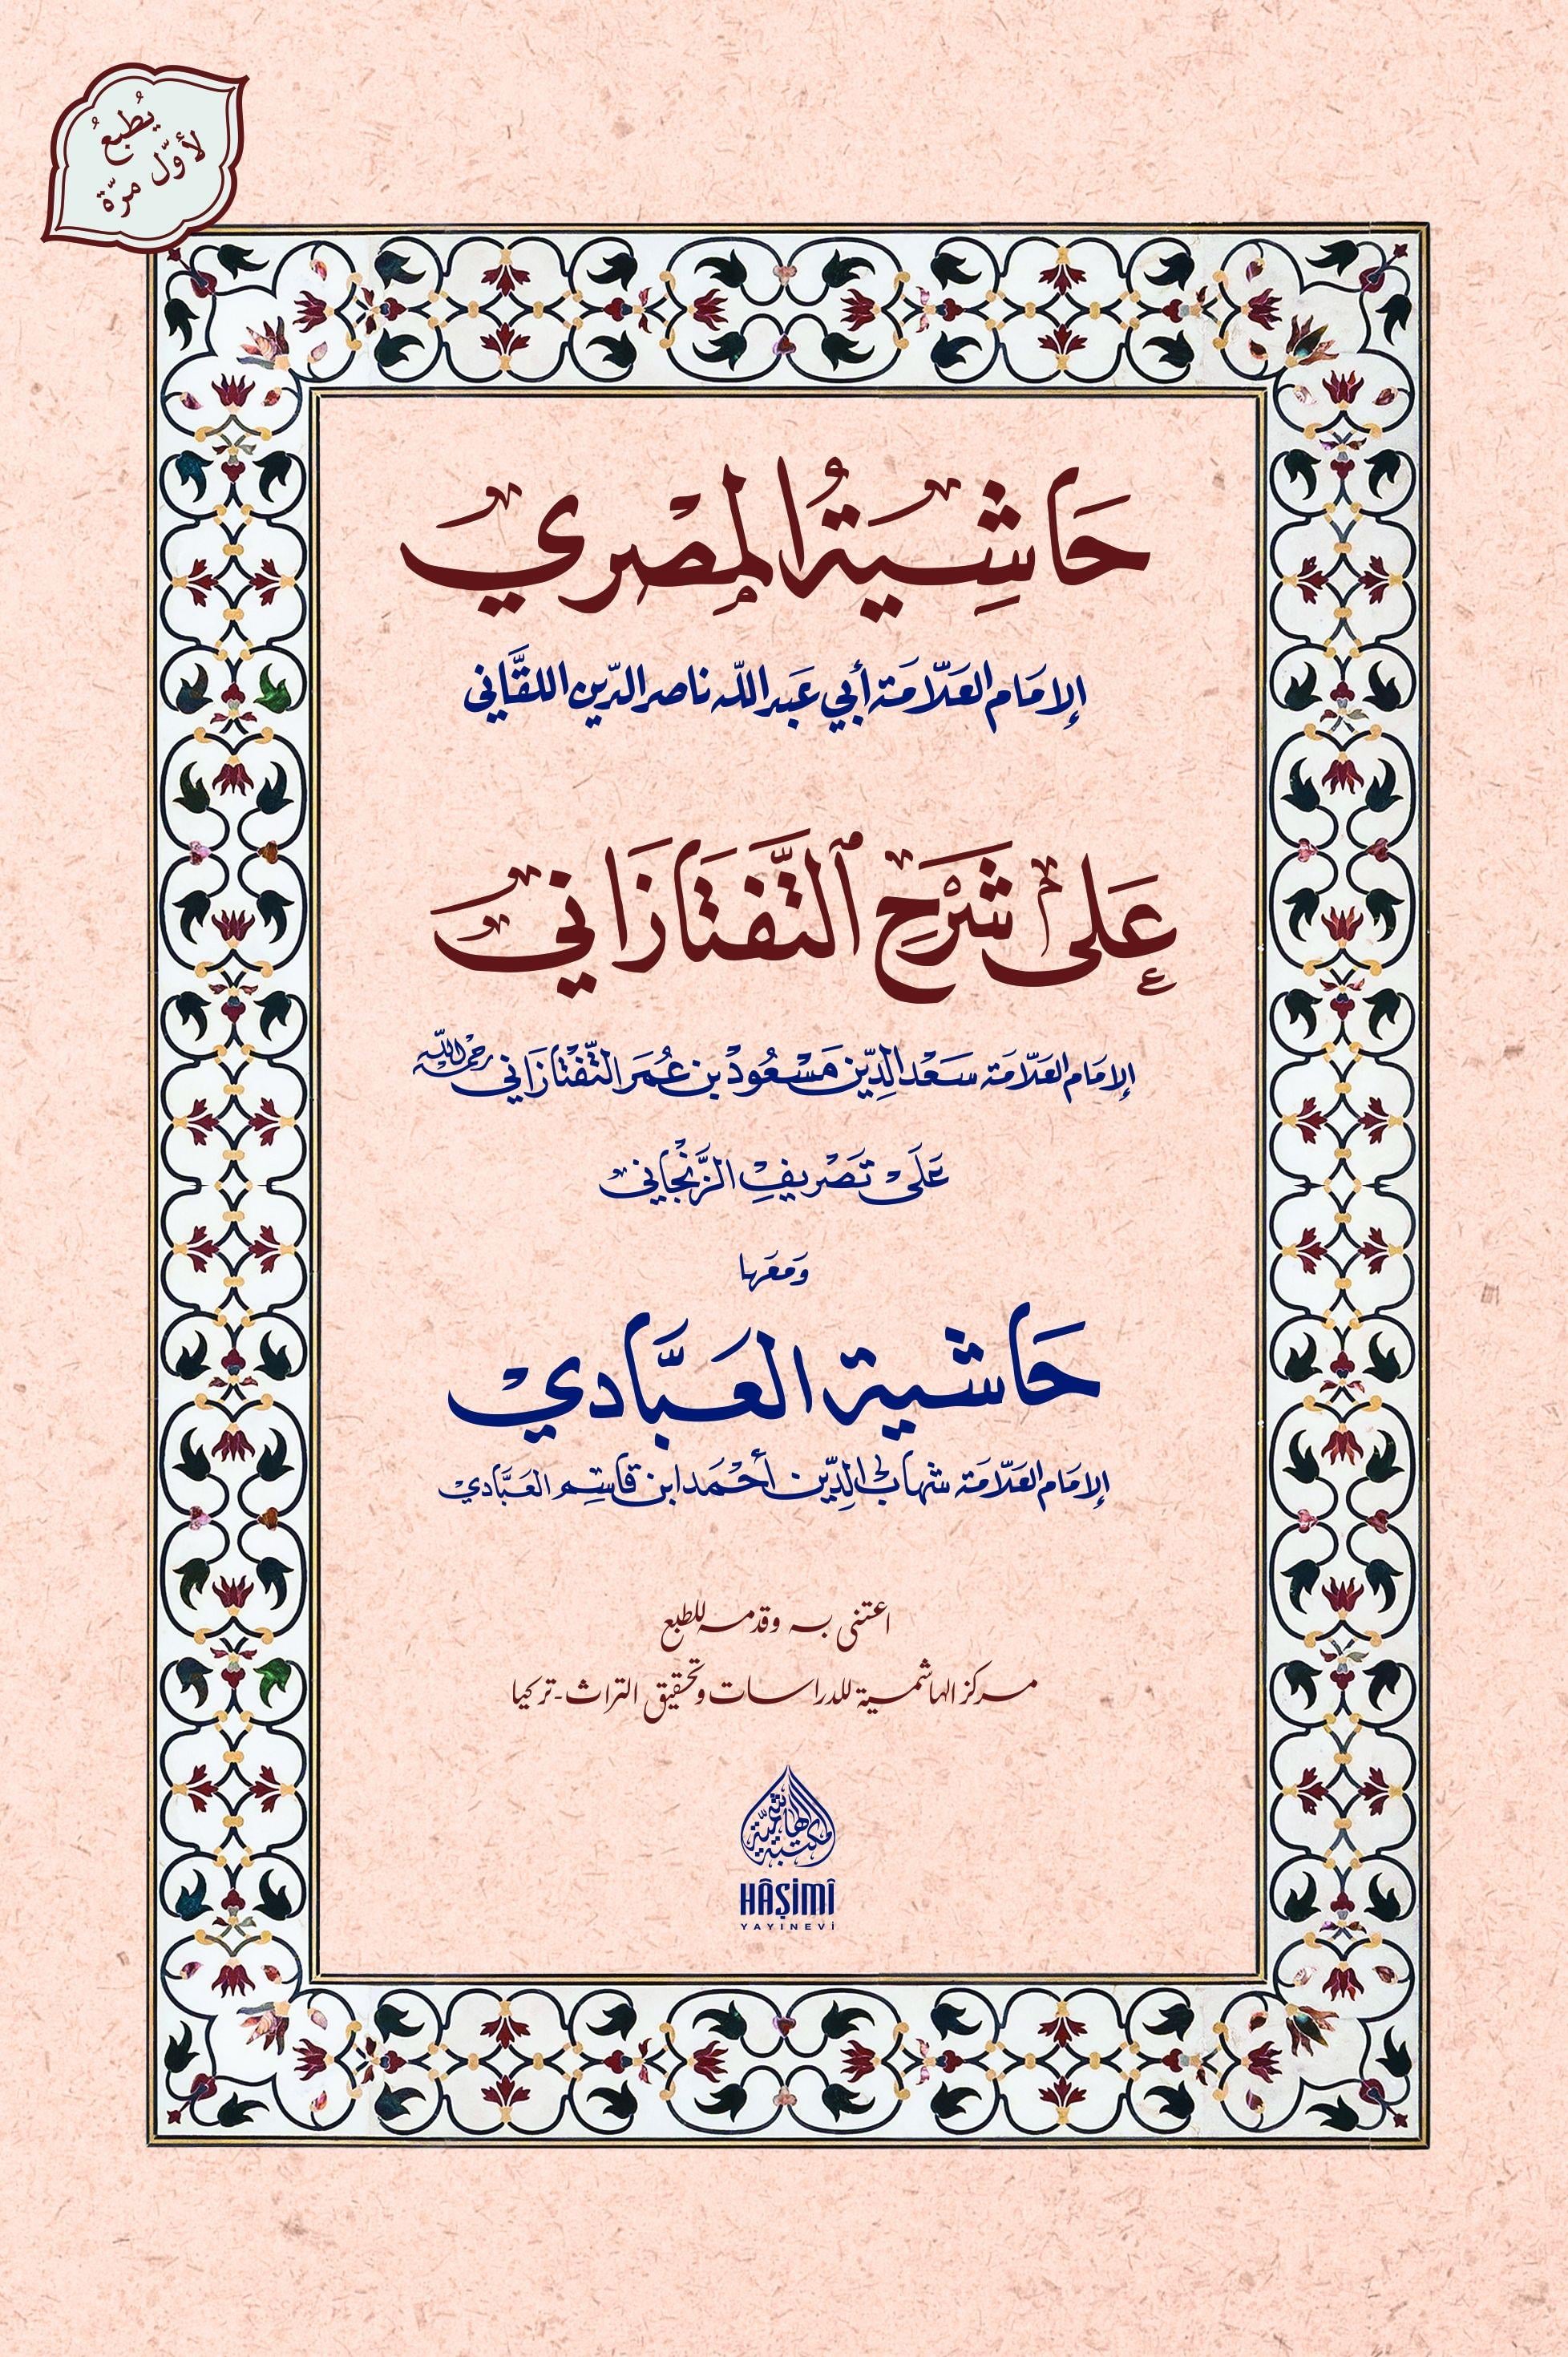 يُطبعُ
لأوّل مرّة
حَاشِيَةُ المِصْري
الإمَام العَلّامَة أبي عَبد الله ناصر الدّين اللقَّاني
عَلى شَرْحِ التَّفتَازَاني
الإمَام العَلّامَة سَعْد الدِّين مَسْعُودْ بن عُمَر التَّفْتَازَاني رحمه الله
عَلَىْ تَصْريفِ الزَّنْجَاني
وَمعَها
حَاشية العَبَّادي
الإمَام العَلّامَة شهاب الدِّين أحْمَد ابن قاسِم العَبَّادي
اعتنى به وقدمه للطبع
مركز الهاشمية للدراسات وتحقيق التراث-تركيا
المكتبة الهاشميّة
HÂŞİMÎ
YAYINEVİ